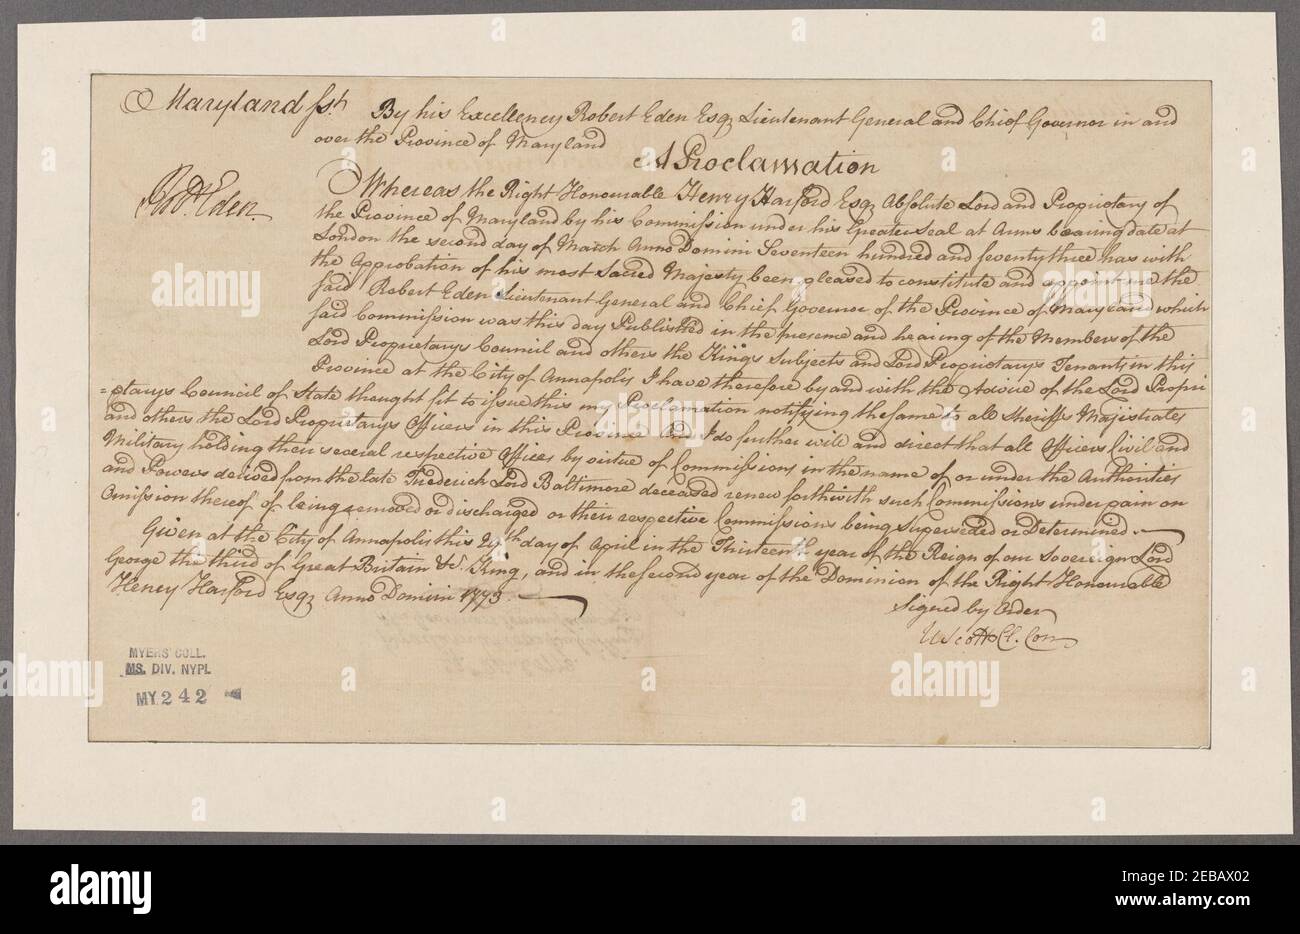 Maryland ssh.
By his Excellency Robert Eden Esqr Lieutenant General and Chief Governor in and
over the Province of Maryland
A Proclamation
Robt. Eden
Whereas the Right Honourable Henry Harford Esqr Absolute Lord and Proprietary of
the Province of Maryland by his Commission under his Greater Seal at Arms bearing date at
London the second day of March Anno Domini Seventeen hundred and seventy three has with
the Approbation of his most Sacred Majesty been pleased to constitute and appoint me the
said Robert Eden Lieutenant General and Chief Governor of the Province of Maryland which
said Commission was this day Published in the presence and hearing of the Members of the
Lord Proprietarys Council and others the Kings Subjects and Lord Proprietarys Tenants in this
Province at the City of Annapolis I have therefore by and with the Advice of the Lord Propri
=etarys Council of State thought fit to issue this my Proclamation notifying the same to all Sheriffs Majistrates
and others the Lord Proprietarys Officers in this Province And I do further will and direct that all Officers Civil and
Military holding their several respective Offices by virtue of Commissions in the name of or under the Authorities
and Powers derived from the late Frederick Lord Baltimore deceased renew forthwith such Commissions under pain on
Omission thereof of being removed or discharged or their respective Commissions being superseded or Determined.
Given at the City of Annapolis this 29th day of April in the Thirteenth year of the Reign of our Sovereign Lord
George the third of Great Britain &c. King, and in the second year of the Dominion of the Right Honourable
Henry Harford Esqr Anno Domini 1773.
Signed by Order
U Scott Cl. Con
MYERS COLL.
MS. DIV. NYPL
MY 242
alamy
alamy
Image ID: 2EBAX02
www.alamy.com